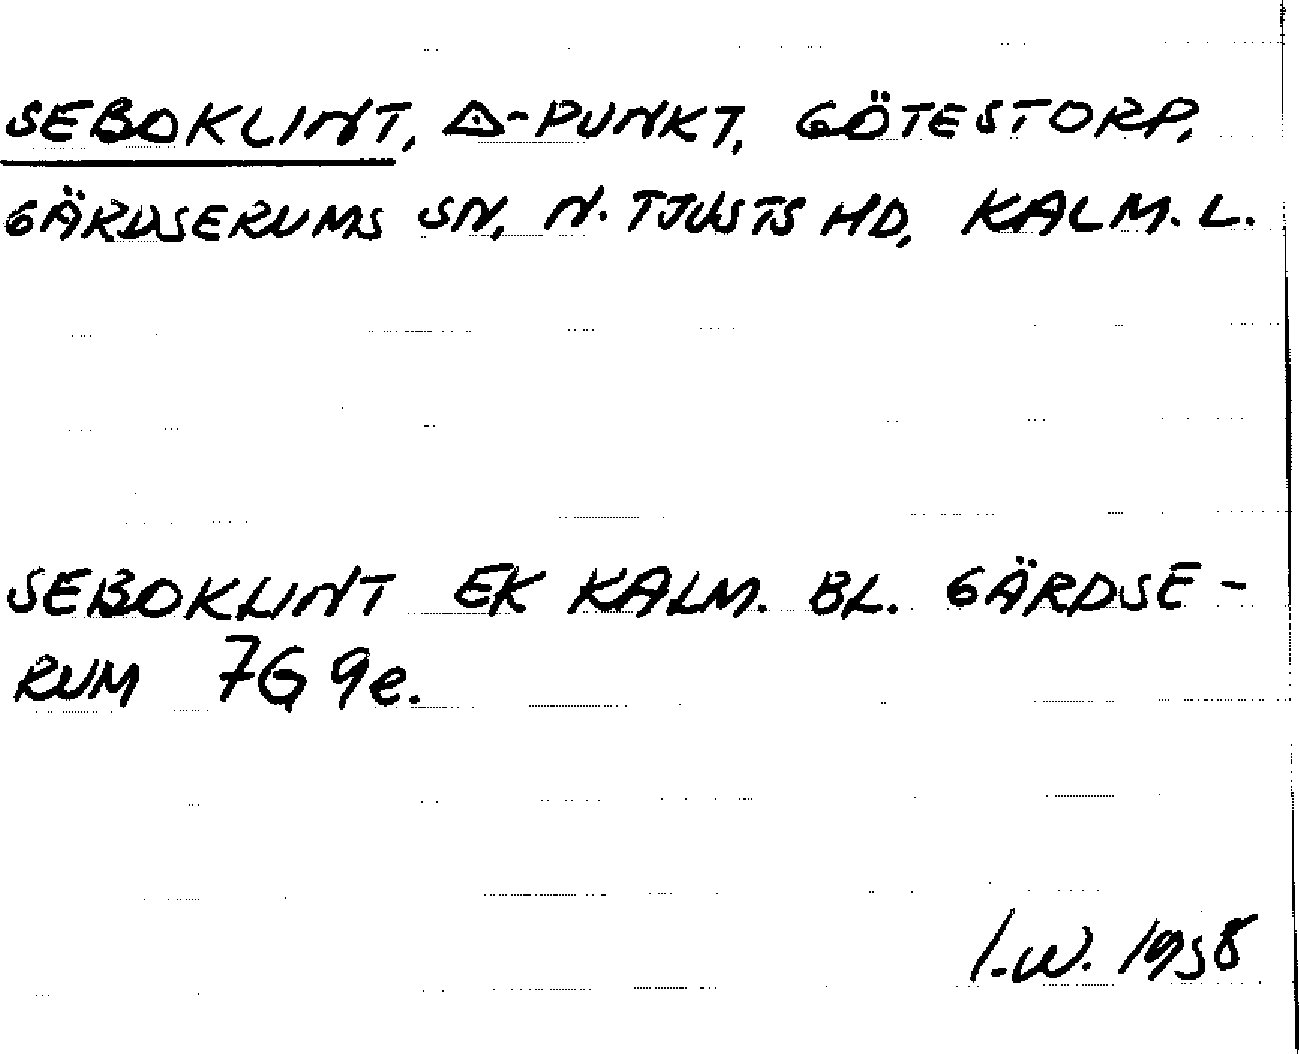 SEBOKLINT, △-PUNKT, GÖTESTORP,
GÄRDSERUMS SN, N. TJUSTS HD, KALM. L.
SEBOKLINT EK KALM. BL. GÄRDSE-
RUM 7G 9e.
I.W. 1958